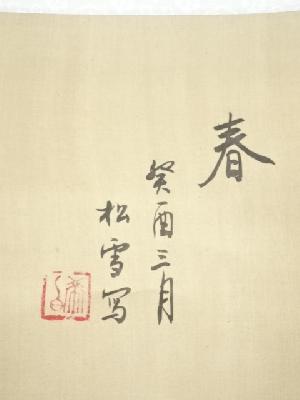 春
癸酉三月
松雪写